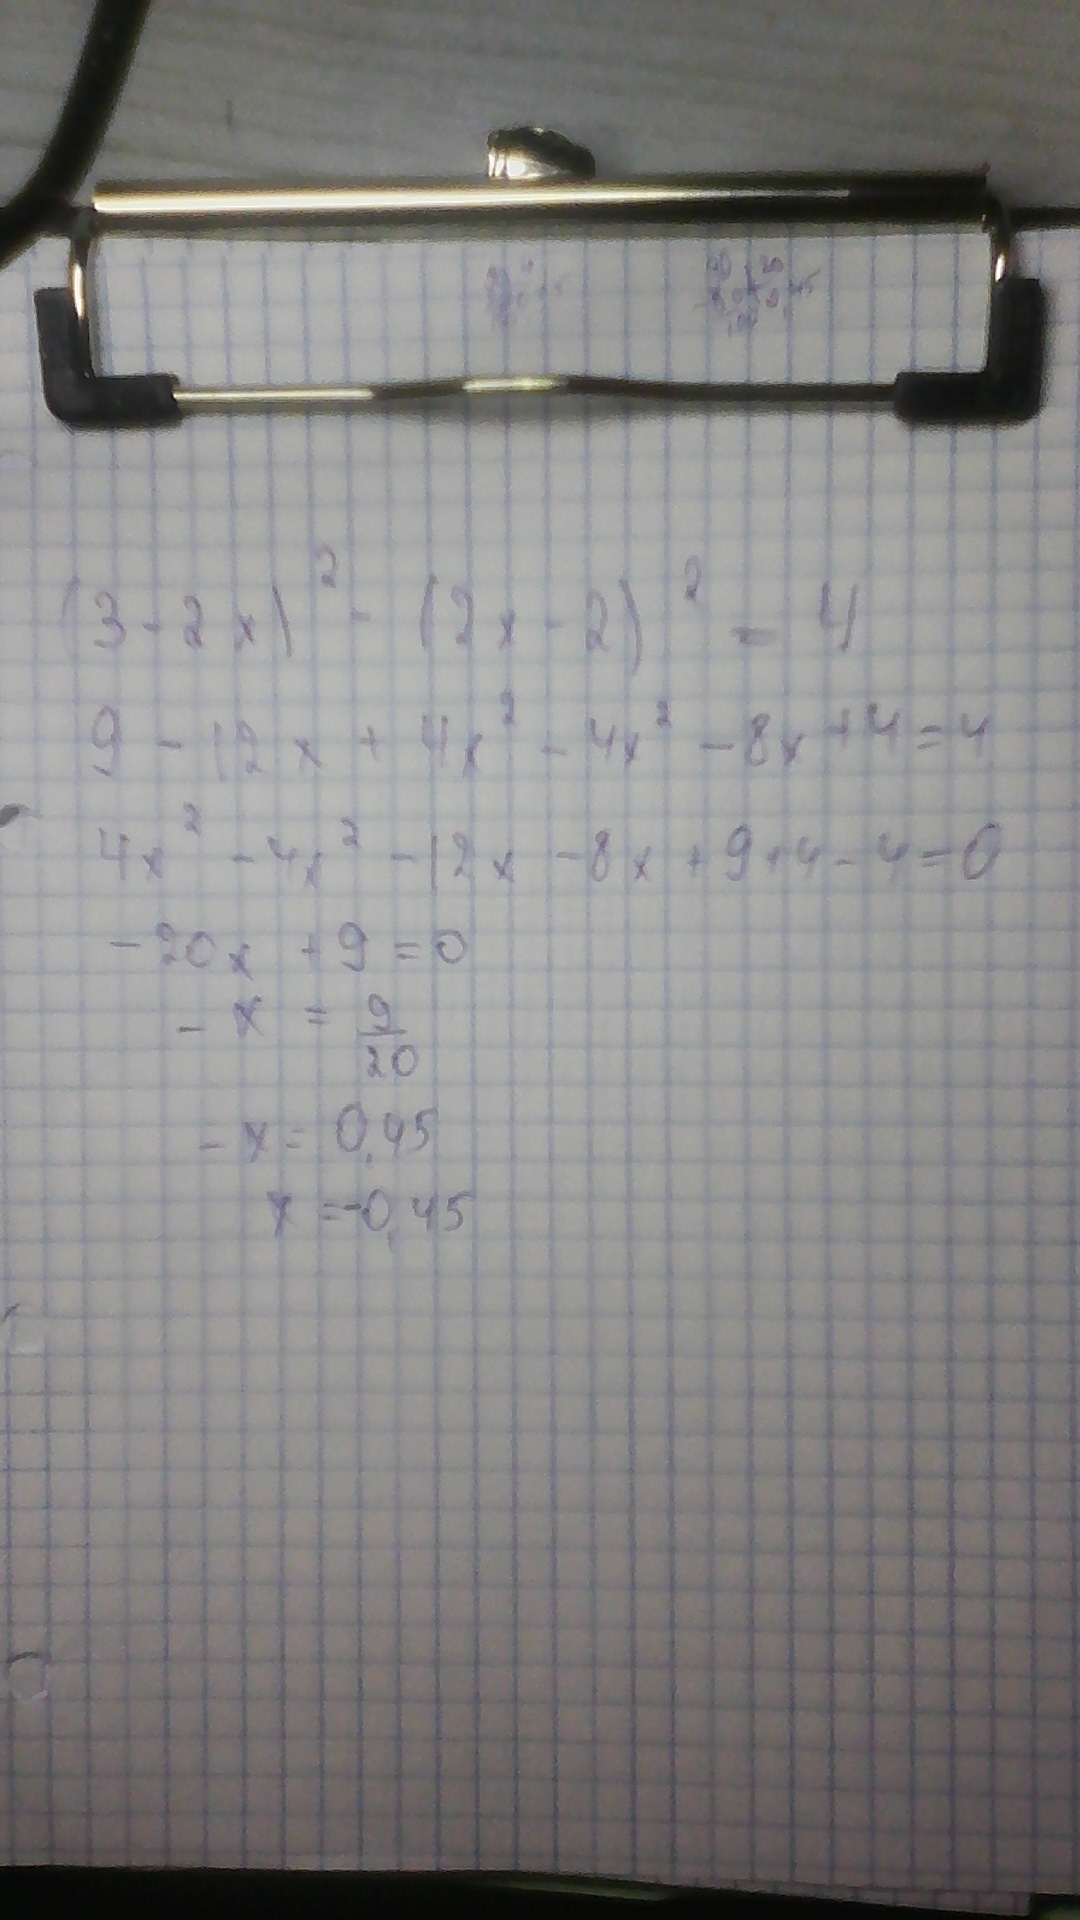 (3-2x)² - (2x-2)² = 4
9 - 12x + 4x² - 4x² - 8x + 4 = 4
4x² - 4x² - 12x - 8x + 9 + 4 - 4 = 0
-20x + 9 = 0
-x = 9/20
-x = 0,45
x = -0,45